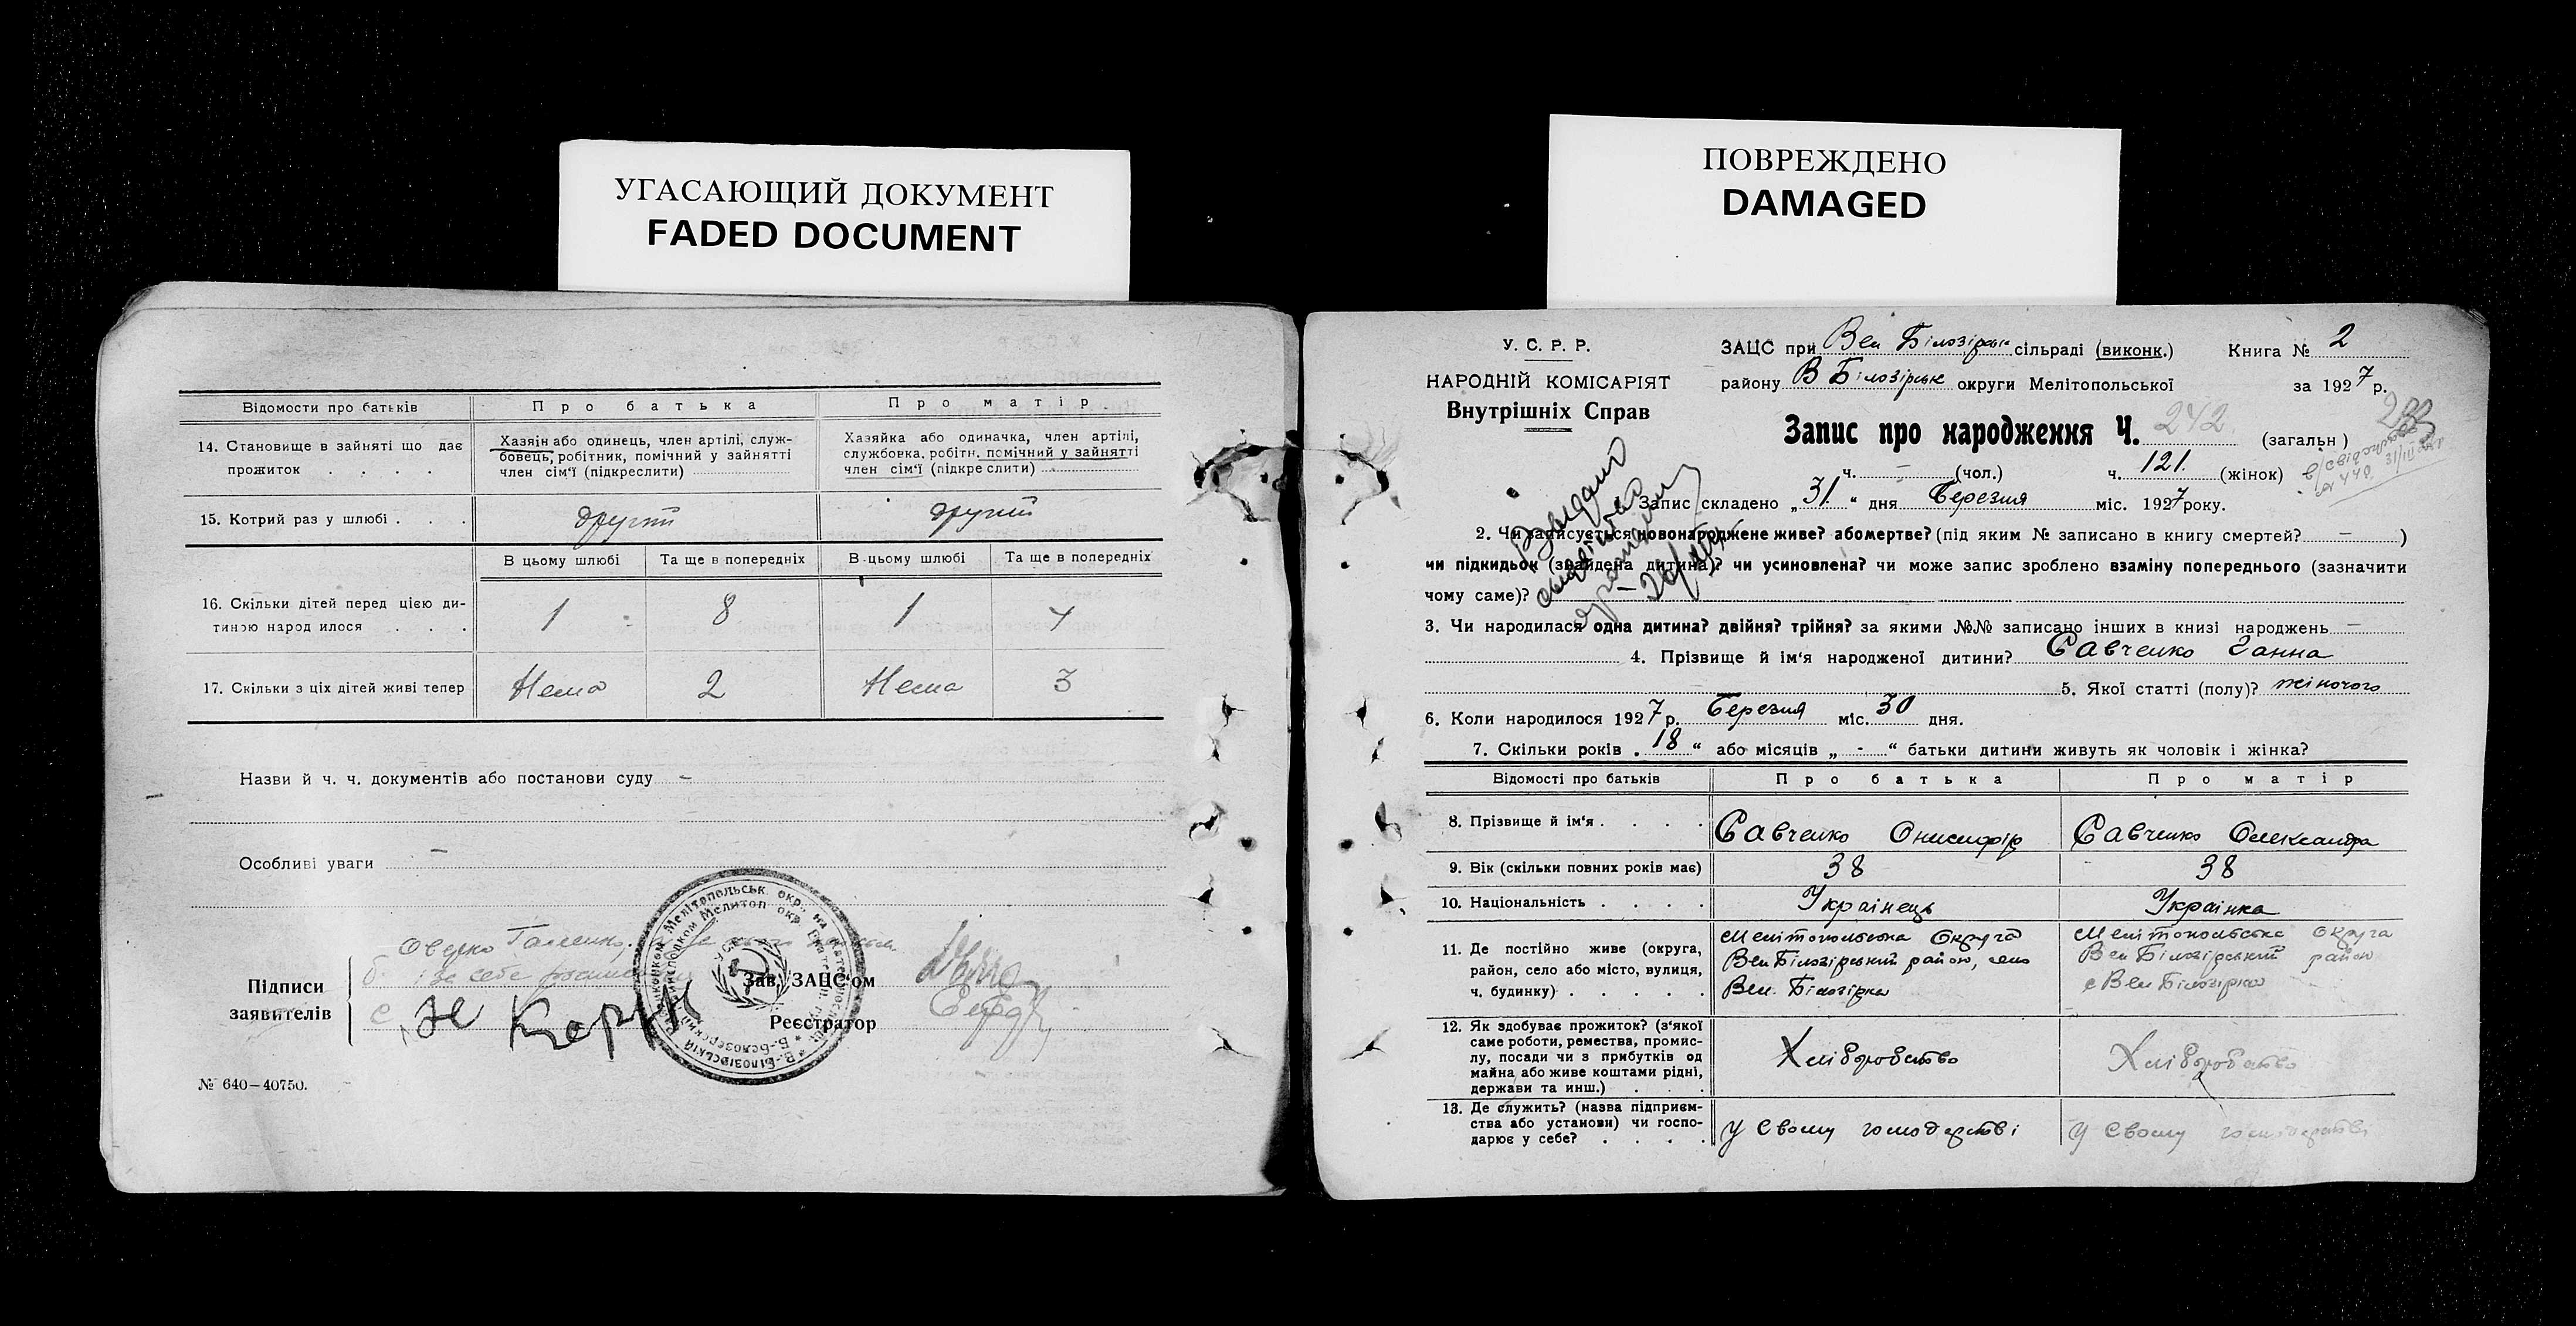 УГАСАЮЩИЙ ДОКУМЕНТ
FADED DOCUMENT
Відомости про батьків
Про батька
Про матір
14. Становище в зайняті що дає прожиток . . . .
Хазяїн або одинець, член артілі, служ-
бовець, робітник, помічний у зайнятті
член сім'ї (підкреслити)
Хазяйка або одиначка, член артілі,
службовка, робітн. помічний у зайнятті
член сім'ї (підкреслити)
15. Котрий раз у шлюбі . . .
другий
другий
В цьому шлюбі
Та ще в попередніх
В цьому шлюбі
Та ще в попередніх
16. Скільки дітей перед цією ди-
тиною народилося . . .
1
8
1
4
17. Скільки з ціх дітей живі тепер
Нема
2
Нема
3
Назви й ч. ч. документів або постанови суду –
Особливі уваги –
Підписи
заявителів
Зав. ЗАЦС'ом
Реєстратор
№ 640—40750.
ПОВРЕЖДЕНО
DAMAGED
У. С. Р. Р.
НАРОДНІЙ КОМІСАРІЯТ
Внутрішніх Справ
ЗАЦС при Вел Білозірськ сільраді (виконк.) Книга № 2
району В Білозірськ округи Мелітопольської за 1927 р.
Запис про народження Ч. 242 (загальн)
ч. – (чол.) ч. 121. (жінок)
Запис складено „31" дня Березня міс. 1927 року.
2. Чи записується новонароджене живе? або мертве? (під яким № записано в книгу смертей? – )
чи підкидьок (знайдена дитина)? чи усиновлена? чи може запис зроблено взаміну попереднього (зазначити
чому саме)?
3. Чи народилася одна дитина? двійня? трійня? за якими №№ записано інших в книзі народжень –
4. Прізвище й ім'я народженої дитини? Савченко Ганна
5. Якої статті (полу)? жіночого
6. Коли народилося 1927 р. Березня міс. 30 дня.
7. Скільки років „18" або місяців „ - " батьки дитини живуть як чоловік і жінка?
Відомості про батьків
Про батька
Про матір
8. Прізвище й ім'я . . . .
Савченко Онисифір
Савченко Олександра
9. Вік (скільки повних років має)
38
38
10. Національність . . . .
Українець
Українка
11. Де постійно живе (округа,
район, село або місто, вулиця,
ч. будинку) . . . . .
Мелітопольська Округа
Вел Білозірський район, село
Вел. Білозірка
Мелітопольська Округа
Вел Білозірський район
с Вел Білозірка
12. Як здобуває прожиток? (з'якої
саме роботи, ремества, промис-
лу, посади чи з прибутків од
майна або живе коштами рідні,
держави та инш.) . . .
Хліборобство
Хліборобство
13. Де служить? (назва підприєм-
ства або установи) чи госпо-
дарює у себе? . . . .
у своему господарстві
у своему господарстві